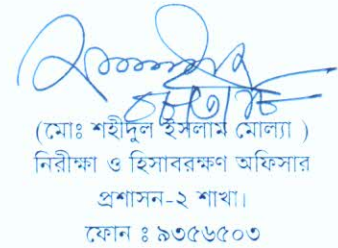 (মোঃ শহীদুল ইসলাম মোল্যা )
নিরীক্ষা ও হিসাবরক্ষণ অফিসার
প্রশাসন-২ শাখা।
ফোন ঃ ৯৩৫৬৫০৩